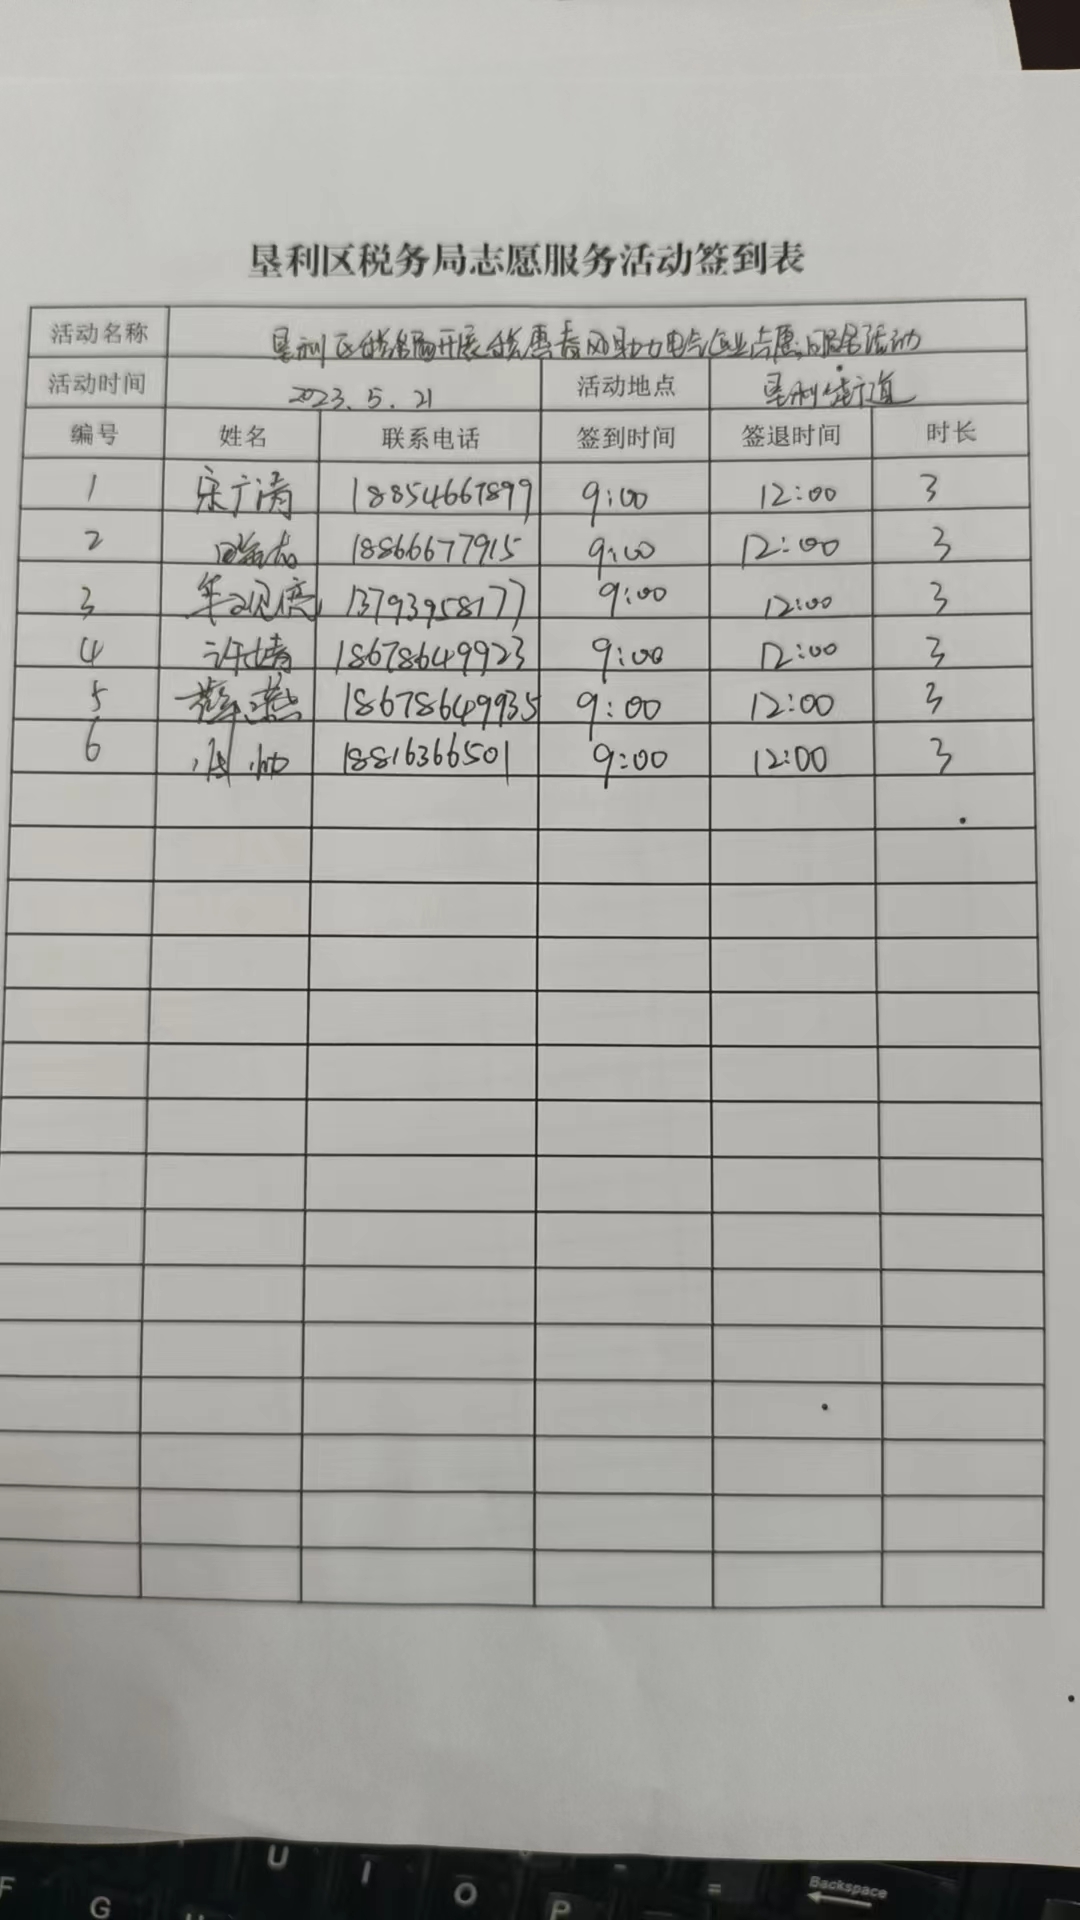 垦利区税务局志愿服务活动签到表
活动名称 垦利区税务局开展税惠春风助力电气企业志愿服务活动
活动时间 2023.5.21 活动地点 垦利街道
编号 姓名 联系电话 签到时间 签退时间 时长
1 宋广清 18854667899 9:00 12:00 3
2 18866677915 9:00 12:00 3
3 13793958177 9:00 12:00 3
4 许婧 18678649923 9:00 12:00 3
5 18678649935 9:00 12:00 3
6 18816366501 9:00 12:00 3
U I O P = Backspace
F G